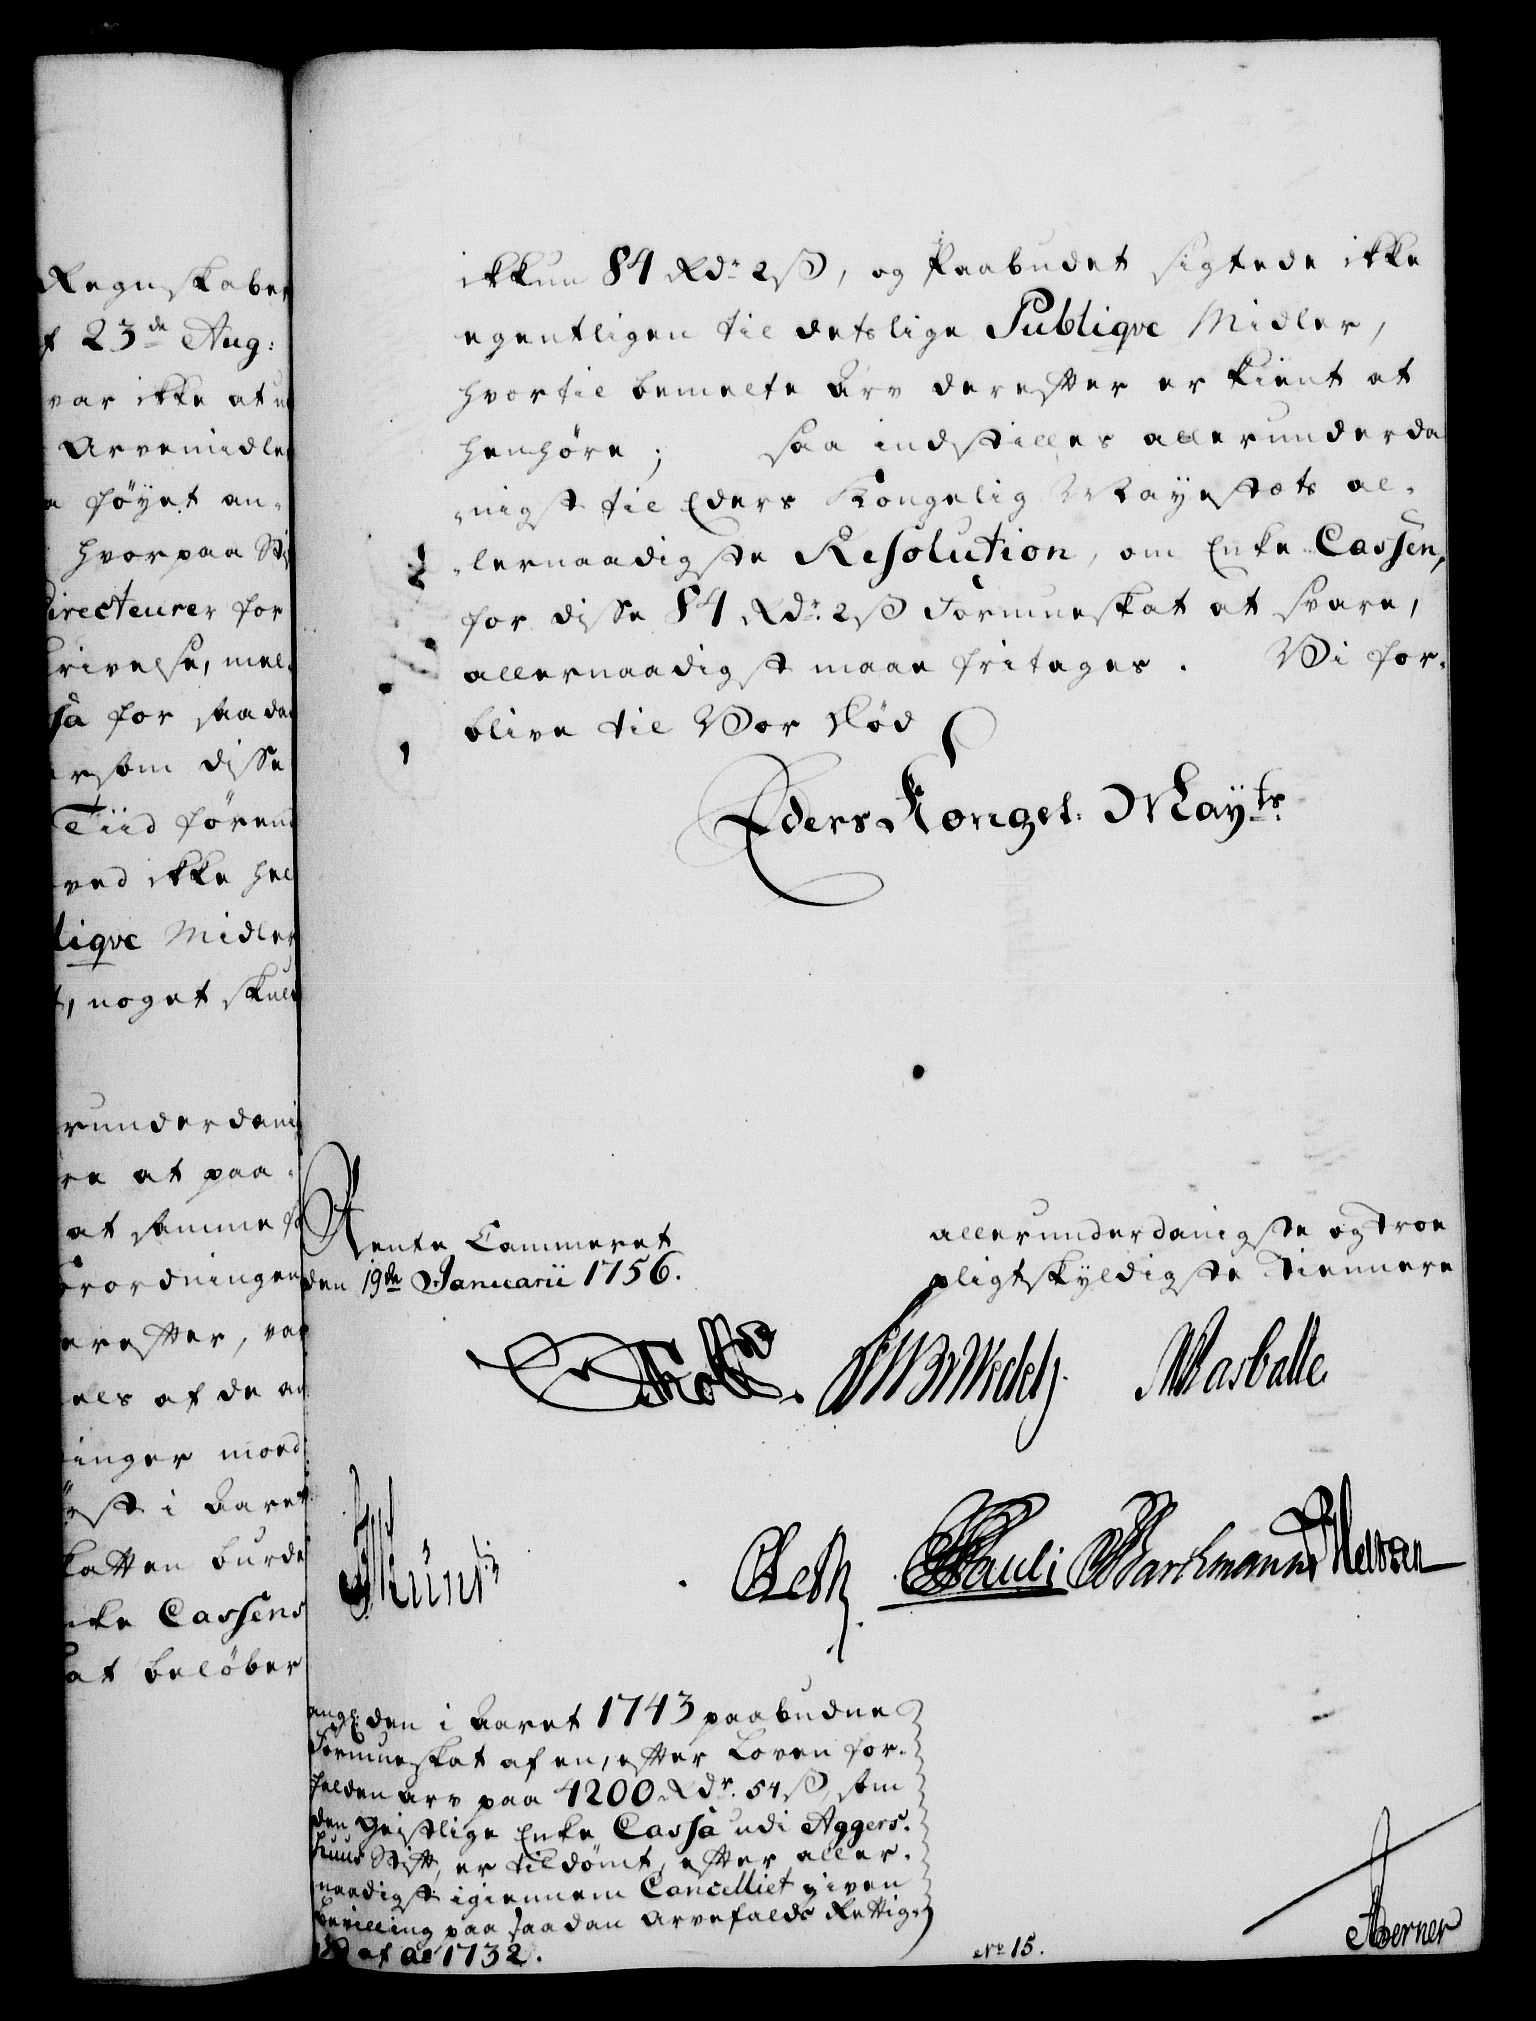 Regnskaber
23de Aug:
var ikke at
Arvemidle
føyet an-
hvorpaa
Directeurer for
krivelse, mel-
sa for saada
rsom disse
Tiid føren
ved ikke hel
liqve Midler
noget skul
runderdani
re at paa-
at samme
orordningen
erefter, var
els af de an
inger moed
st i Aaret
katten burde
nke Cassens
kat beløber
ikkun 84 Rdr 2 ß, og Paabudet sigtede ikke
egentligen til detslige Publiqve Midler,
hvortil bemelte Arv derefter er kient at
henhøre; saa indstilles allerunderda
-nigst til Eders Kongelig Mayestæts al-
-lernaadigste Resolution, om Enke-Cassen,
for disse 84 Rdr. 2 ß Formueskat at svare,
allernaadigst maae fritages. Vi for-
blive til Vor Død
Eders Kongel: Mayts.
Rente Cammeret
den 19de Januarii 1756.
allerunderdanigste og troe
pligtskyldigste Tiennere
Holst. Wedelz. Masballe.
Münt
Leth. Pauli Barchmann Nelssen
angl: den i Aaret 1743 paabudne
Formueskat af en, efter Loven for-
falden Arv paa 4200 Rdr. 54 ß, som
den Geistlige Enke Cassa udi Aggers-
huus Stift, er tildømt, efter aller-
naadigst igiennem Cancelliet given
Bevilling paa saadan Arvefalds Rettig-
hed af Ao 1732.
No 15.
Aberner